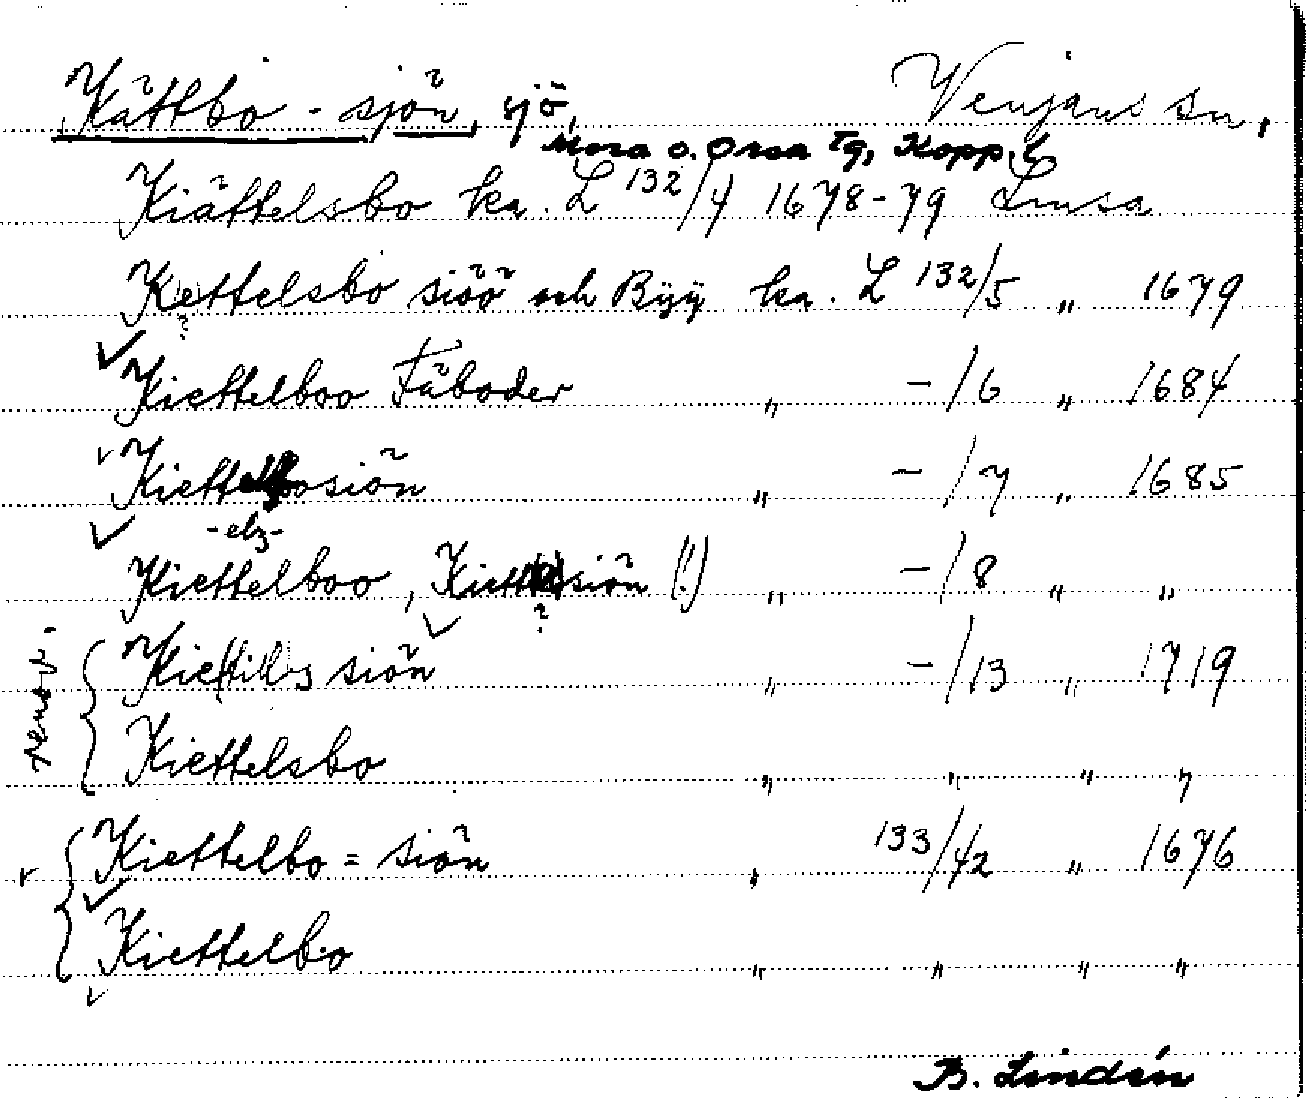 Kättbo-sjön, sjö, Venjans sn,
Mora o. Orsa tg, Kopp. l
Kiättelsbo ka. L 132/4 1678-79 Lmsa
Kettelsbo siöö och Byÿ ka. L 132/5 „ 1679
?
Kiettelboo Fäboder „ -/6 „ 1684
Kiettelbosiön „ -/7 „ 1685
-elz-
Kiettelboo, siön (!) „ -/8 „ „
?
renov.
siön „ -/13 „ 1719
Kiettelsbo „ „ „ „
Kiettelbo = siön „ 133/42 „ 1676
Kiettelbo „ „ „ „
B. Lindén